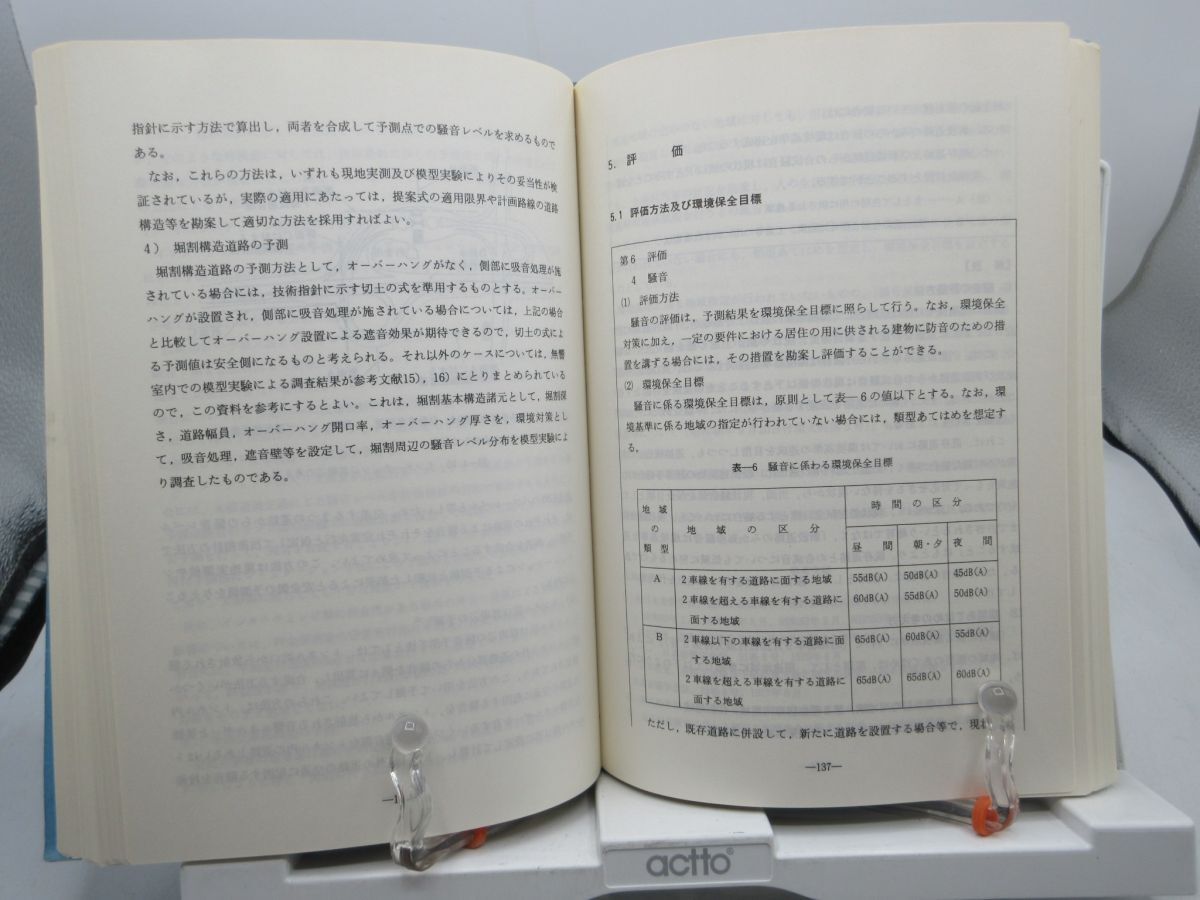 指針に示す方法で算出し，両者を合成して予測点での騒音レベルを求めるもので
ある。
なお，これらの方法は，いずれも現地実測及び模型実験によりその妥当性が検
証されているが，実際の適用にあたっては，提案式の適用限界や計画路線の道路
構造等を勘案して適切な方法を採用すればよい。
4） 堀割構造道路の予測
堀割構造道路の予測方法として，オーバーハングがなく，側部に吸音処理が施
されている場合には，技術指針に示す切土の式を準用するものとする。オーバー
ハングが設置され，側部に吸音処理が施されている場合については，上記の場合
と比較してオーバーハング設置による遮音効果が期待できるので，切土の式によ
る予測値は安全側になるものと考えられる。それ以外のケースについては，無響
室内での模型実験による調査結果が参考文献15），16）にとりまとめられている
ので，この資料を参考にするとよい。これは，堀割基本構造諸元として，堀割深
さ，道路幅員，オーバーハング開口率，オーバーハング厚さを，環境対策とし
て，吸音処理，遮音壁等を設定して，堀割周辺の騒音レベル分布を模型実験によ
り調査したものである。
5．評 価
5.1 評価方法及び環境保全目標
第6 評価
4 騒音
⑴ 評価方法
騒音の評価は，予測結果を環境保全目標に照らして行う。なお，環境保全
対策に加え，一定の要件における居住の用に供される建物に防音のための措
置を講ずる場合には，その措置を勘案し評価することができる。
⑵ 環境保全目標
騒音に係る環境保全目標は，原則として表―6の値以下とする。なお，環
境基準に係る地域の指定が行われていない場合には，類型あてはめを想定す
る。
表―6 騒音に係わる環境保全目標
地域の類型 地域の区分 時間の区分
昼間 朝・夕 夜間
A 2車線を有する道路に面する地域 55dB(A) 50dB(A) 45dB(A)
2車線を超える車線を有する道路に 60dB(A) 55dB(A) 50dB(A)
面する地域
B 2車線以下の車線を有する道路に面 65dB(A) 60dB(A) 55dB(A)
する地域
2車線を超える車線を有する道路に 65dB(A) 65dB(A) 60dB(A)
面する地域
ただし，既存道路に併設して，新たに道路を設置する場合等で，現
―137―
actto®